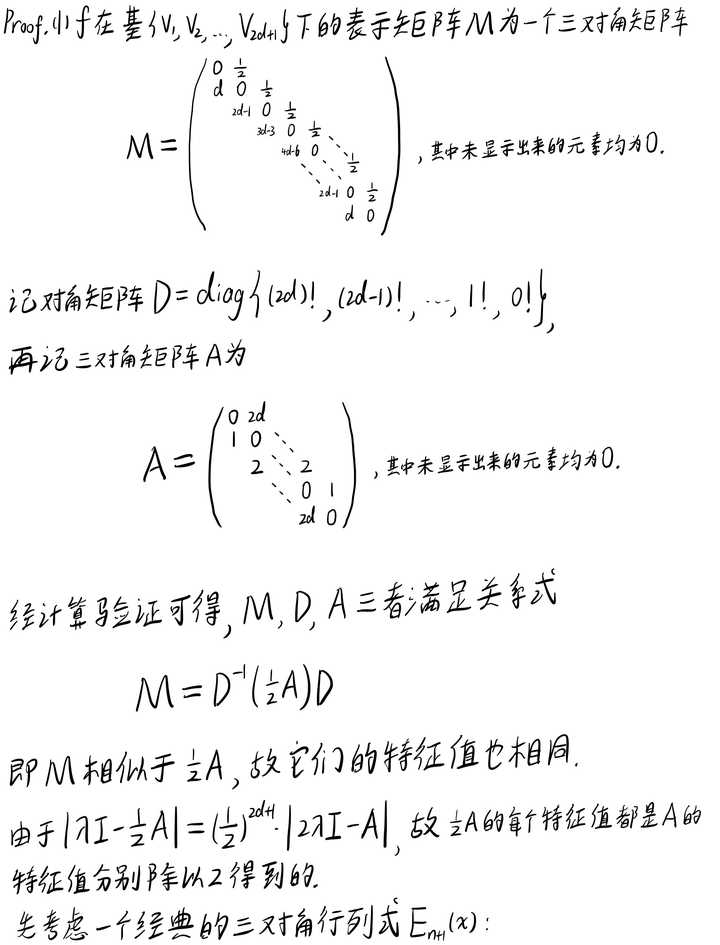 Proof. (1) f在基{V₁, V₂, ..., V₂d+1}下的表示矩阵M为一个三对角矩阵
M =
0 1/2
d 0 1/2
2d-1 0 1/2
3d-3 0 1/2
4d-6 0 ⋱ 1/2
⋱ 2d-1 0 1/2
d 0
,其中未显示出来的元素均为0.
记对角矩阵 D = diag{(2d)!, (2d-1)!, ..., 1!, 0!},
再记三对角矩阵A为
A =
0 2d
1 0 ⋱
2 ⋱ 2
⋱ 0 1
2d 0
,其中未显示出来的元素均为0.
经计算验证可得, M, D, A三者满足关系式
M = D⁻¹(1/2A)D
即M相似于1/2A, 故它们的特征值也相同.
由于|λI-1/2A| = (1/2)^2d+1·|2λI-A|, 故1/2A的每个特征值都是A的
特征值分别除以2得到的.
先考虑一个经典的三对角行列式Eₙ₊₁(x):